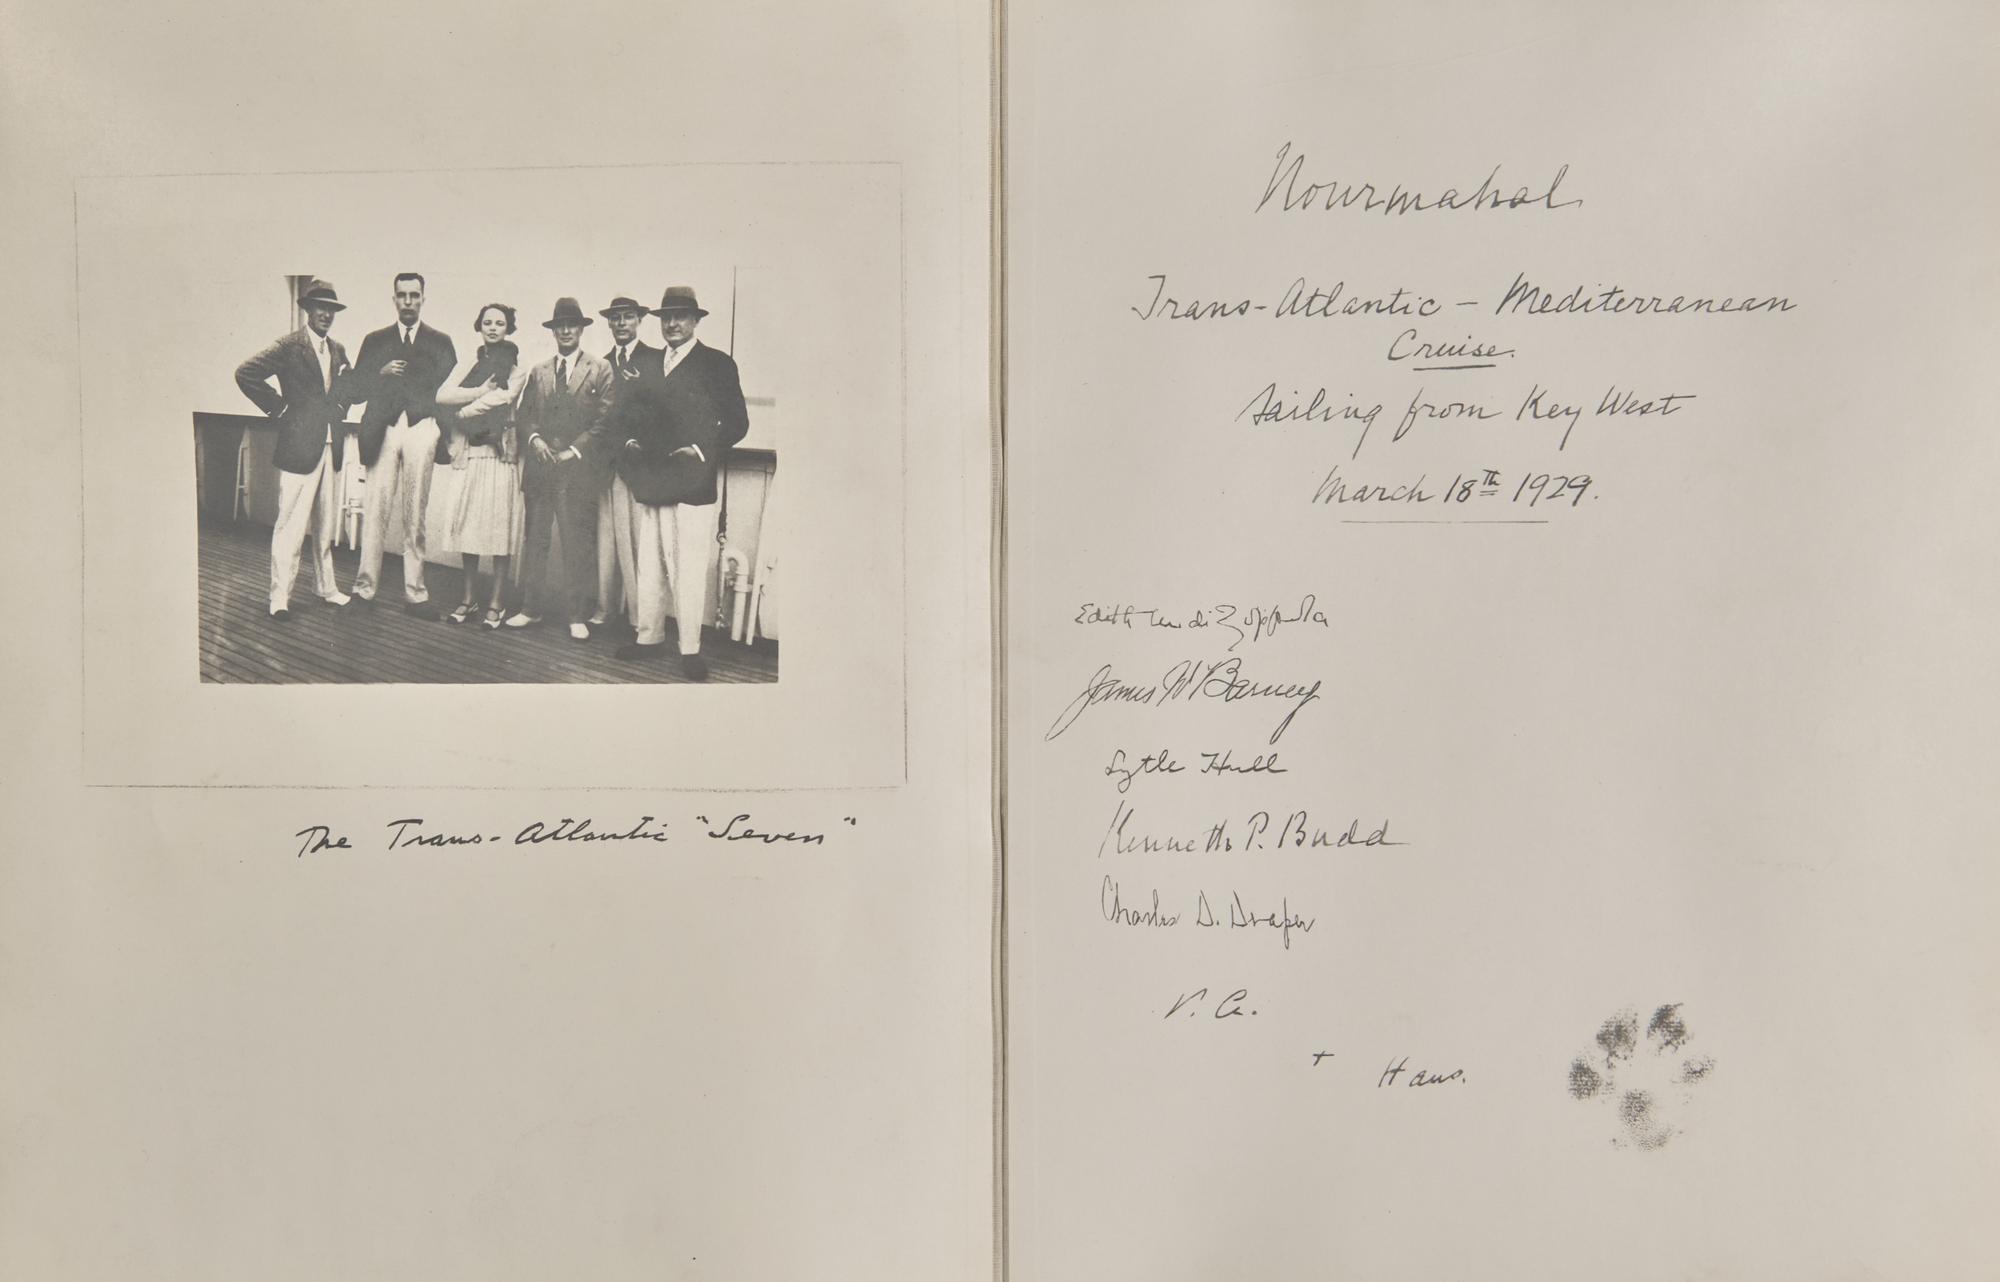 The Trans-Atlantic "Seven"
Nourmahal
Trans-Atlantic – Mediterranean
Cruise.
Sailing from Key West
March 18th 1929.
Edith di
James W Barney
Lytle Hull
Kenneth P. Budd
Charles D. Draper
V. A.
+ Hans.